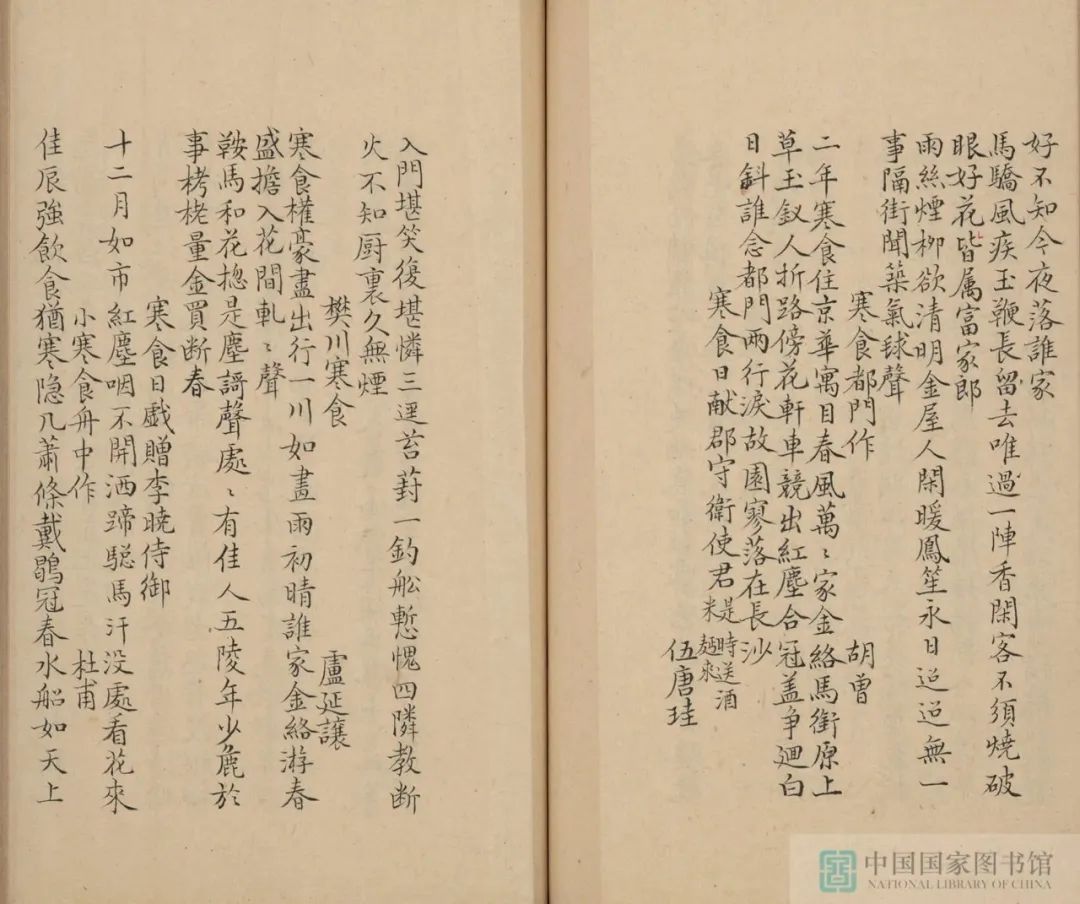 好不知今夜落誰家
馬驕風疾玉鞭長留去唯過一陣香閑客不須燒破
眼好花皆属富家郎
雨絲煙柳欲清明金屋人閑暖鳳笙永日迢迢無一
事隔街聞築氣毬聲
寒食都門作 胡曽
二年寒食住京華寓目春風萬〻家金絡馬銜原上
草玉釵人折路傍花軒車競出紅塵合冠盖争迴白
日斜誰念都門兩行淚故園寥落在長沙
寒食日献郡守衛使君 是時送酒
米麪來
伍唐珪
入門堪笑復堪憐三逕苔葑一釣舩慙愧四隣教断
火不知厨裏久無煙
樊川寒食 盧延讓
寒食權豪盡出行一川如畫雨初晴誰家金絡游春
盛擔入花間軋〻聲
鞍馬和花揔是塵謌聲處〻有佳人五陵年少麄於
事栲栳量金買断春
寒食日戯贈李曉侍御
十二月如市紅塵咽不開洒蹄驄馬汗没處看花來
小寒食舟中作 杜甫
佳辰強飲食猶寒隐几蕭條戴鶡冠春水船如天上
中国国家图书馆
NATIONAL LIBRARY OF CHINA